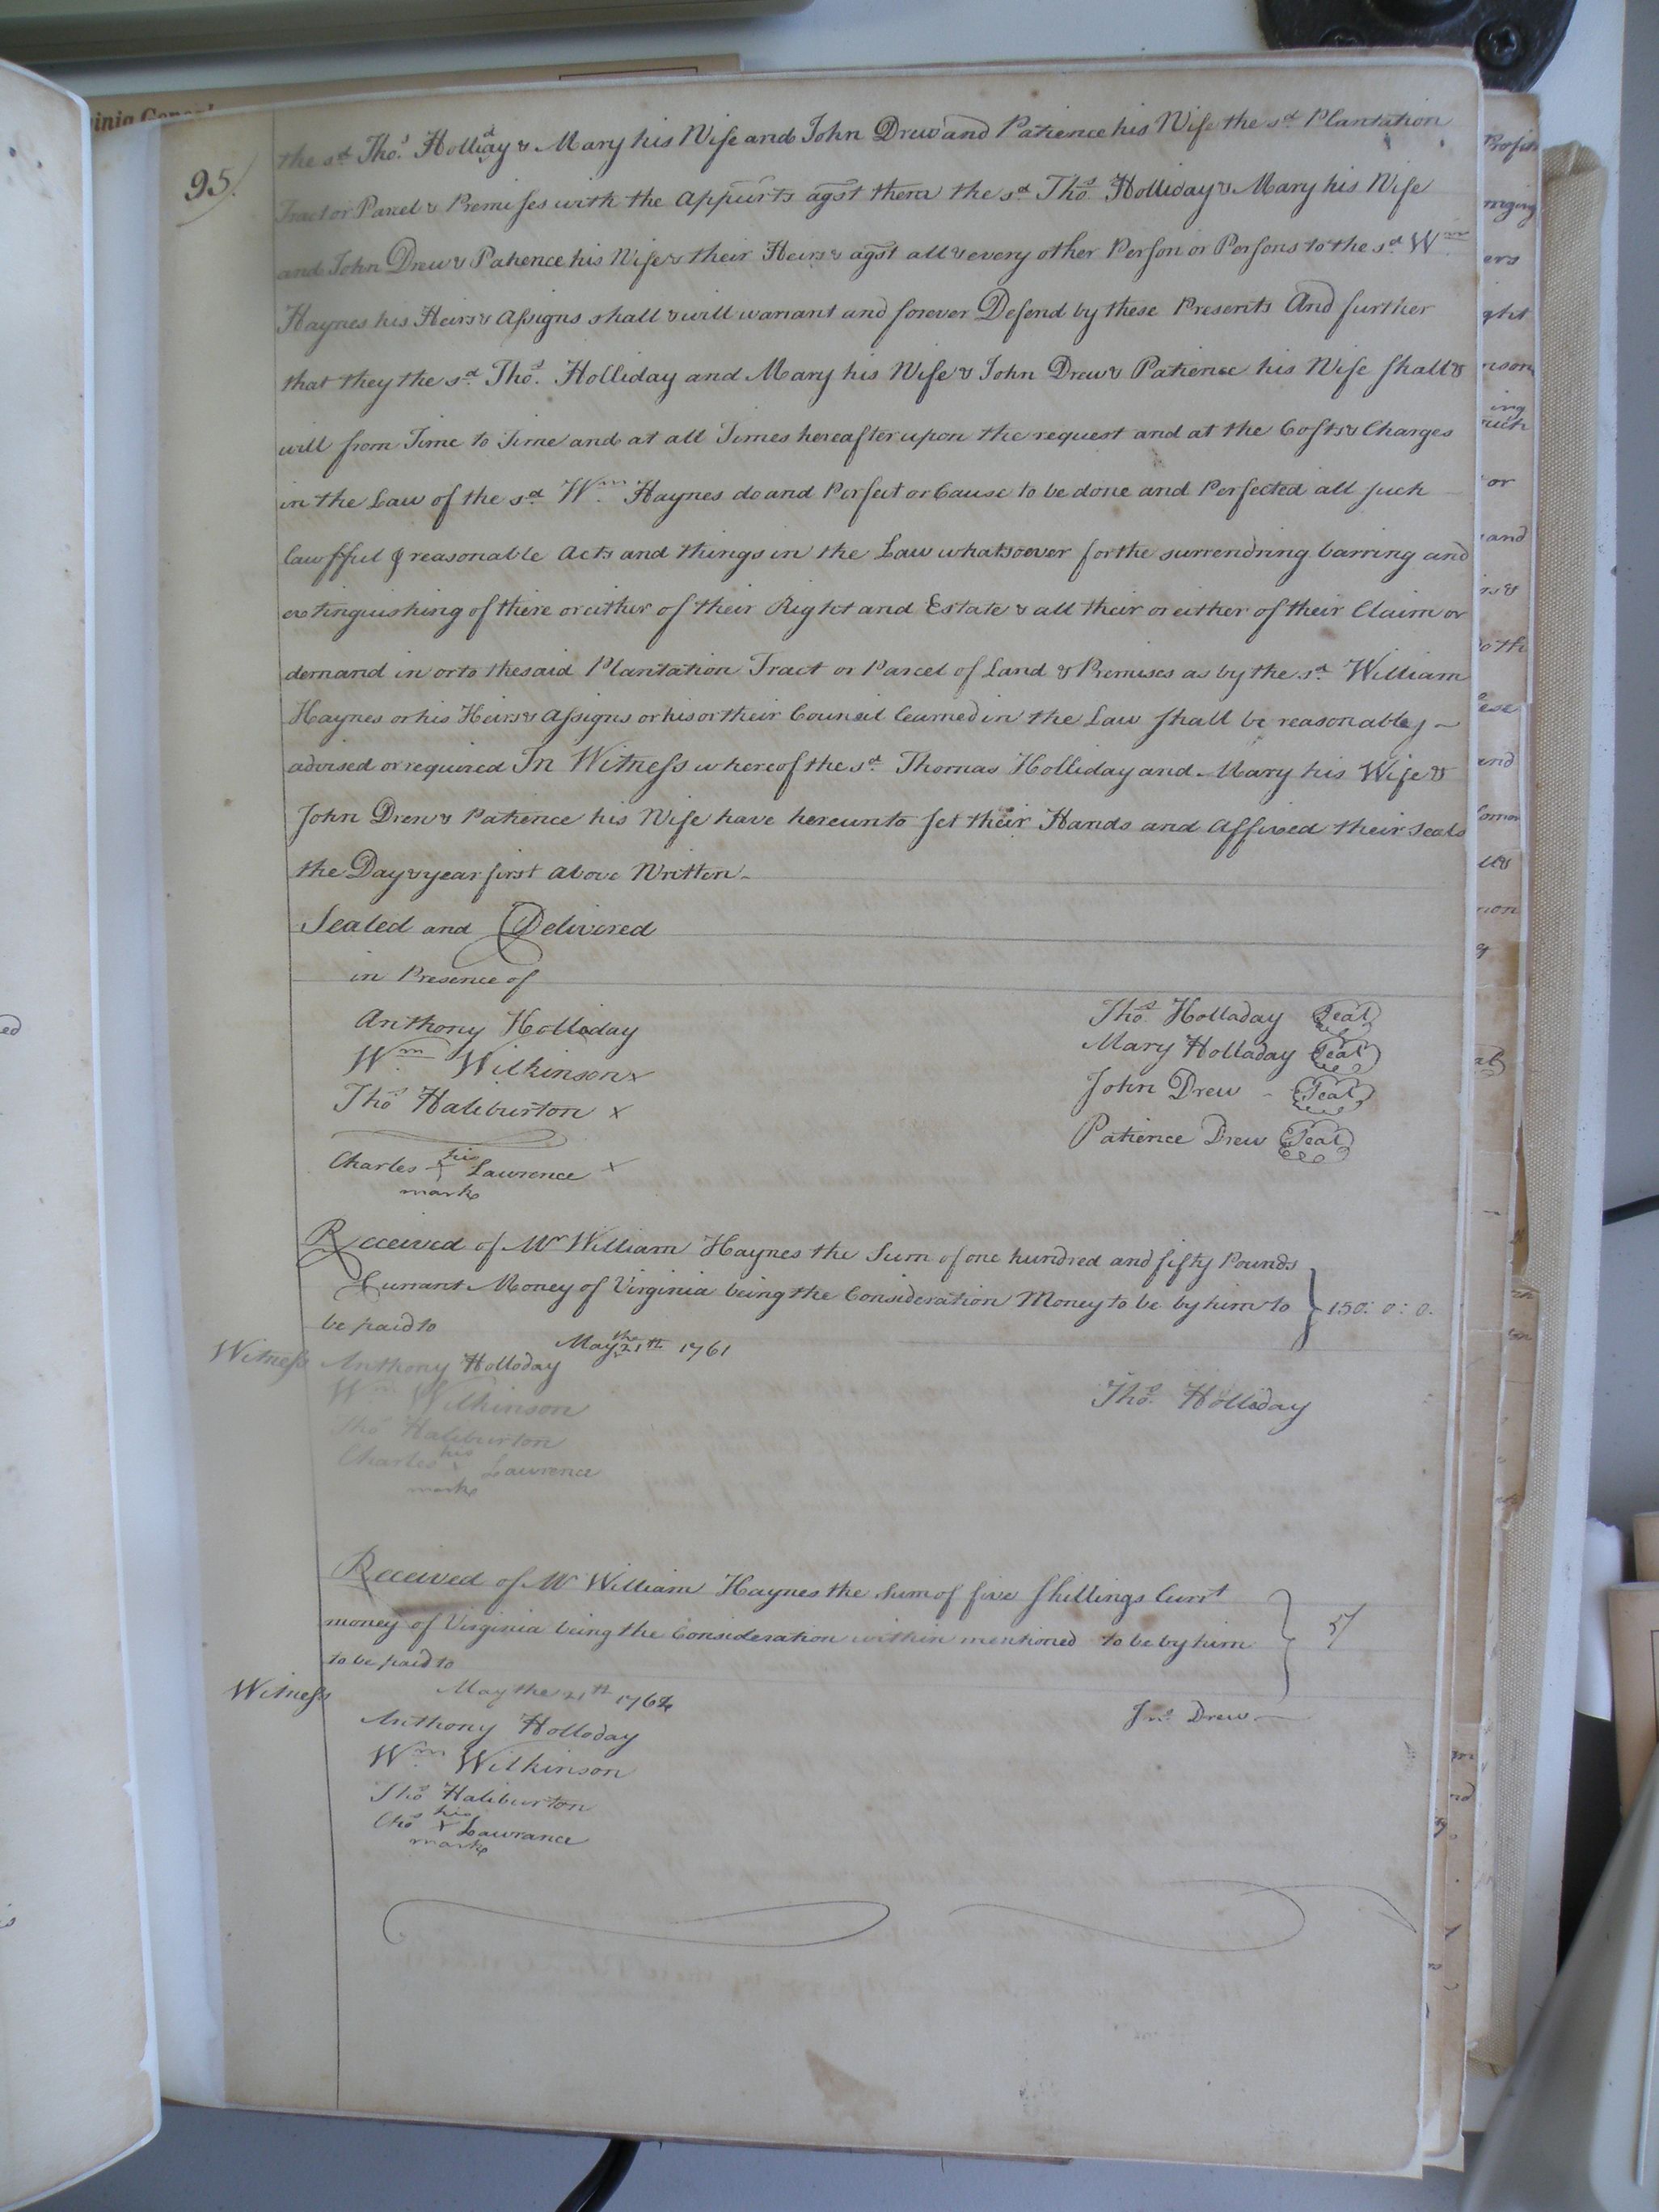 95/.
the sd. Thos. Holliday & Mary his Wife and John Drew and Patience his Wife the sd. Plantation
Tract or Parcel & Premises with the Appurts agst them the sd. Thos. Holliday & Mary his Wife
and John Drew & Patience his Wife & their Heirs & agst all & every other Person or Persons to the sd. Wm.
Haynes his Heirs & Assigns shall & will warrant and forever Defend by these Presents And further
that they the sd. Thos. Holliday and Mary his Wife & John Drew & Patience his Wife shall &
will from Time to Time and at all Times hereafter upon the request and at the Costs & Charges
in the Law of the sd. Wm. Haynes do and Perfect or Cause to be done and Perfected all such
lawfful & reasonable Acts and things in the Law whatsoever for the surrendring barring and
extinguishing of there or either of their Right and Estate & all their or either of their Claim or
demand in or to the said Plantation Tract or Parcel of Land & Premises as by the sd. William
Haynes or his Heirs & Assigns or his or their Council learned in the Law shall be reasonably
advised or required In Witness whereof the sd. Thomas Holliday and Mary his Wife &
John Drew & Patience his Wife have hereunto set their Hands and Affixed their Seals
the Day & year first above Written
Sealed and Delivered
in Presence of
Anthony Holladay
Thos. Holladay Seal
Wm. Wilkinson x
Mary Holladay Seal
Thos Haliburton x
John Drew - Seal
Charles his Lawrence x
mark
Patience Drew Seal
Received of Mr William Haynes the Sum of one hundred and fifty Pounds
Currant Money of Virginia being the Consideration Money to be by him to
be paid to
150: 0: 0.
May the 21th 1761
Witness Anthony Holloday
Wm Wilkinson
Thos. Holliday
Thos Haliburton
Charles his x Lawrence
mark
Received of Mr William Haynes the sum of five shillings Currt
money of Virginia being the Consideration within mentioned to be by him
to be paid to
5/
Witness
May the 21th
Jno. Drew
Anthony Holloday
Wm. Wilkinson
Thos Haliburton
Chas his x Lawrance
mark